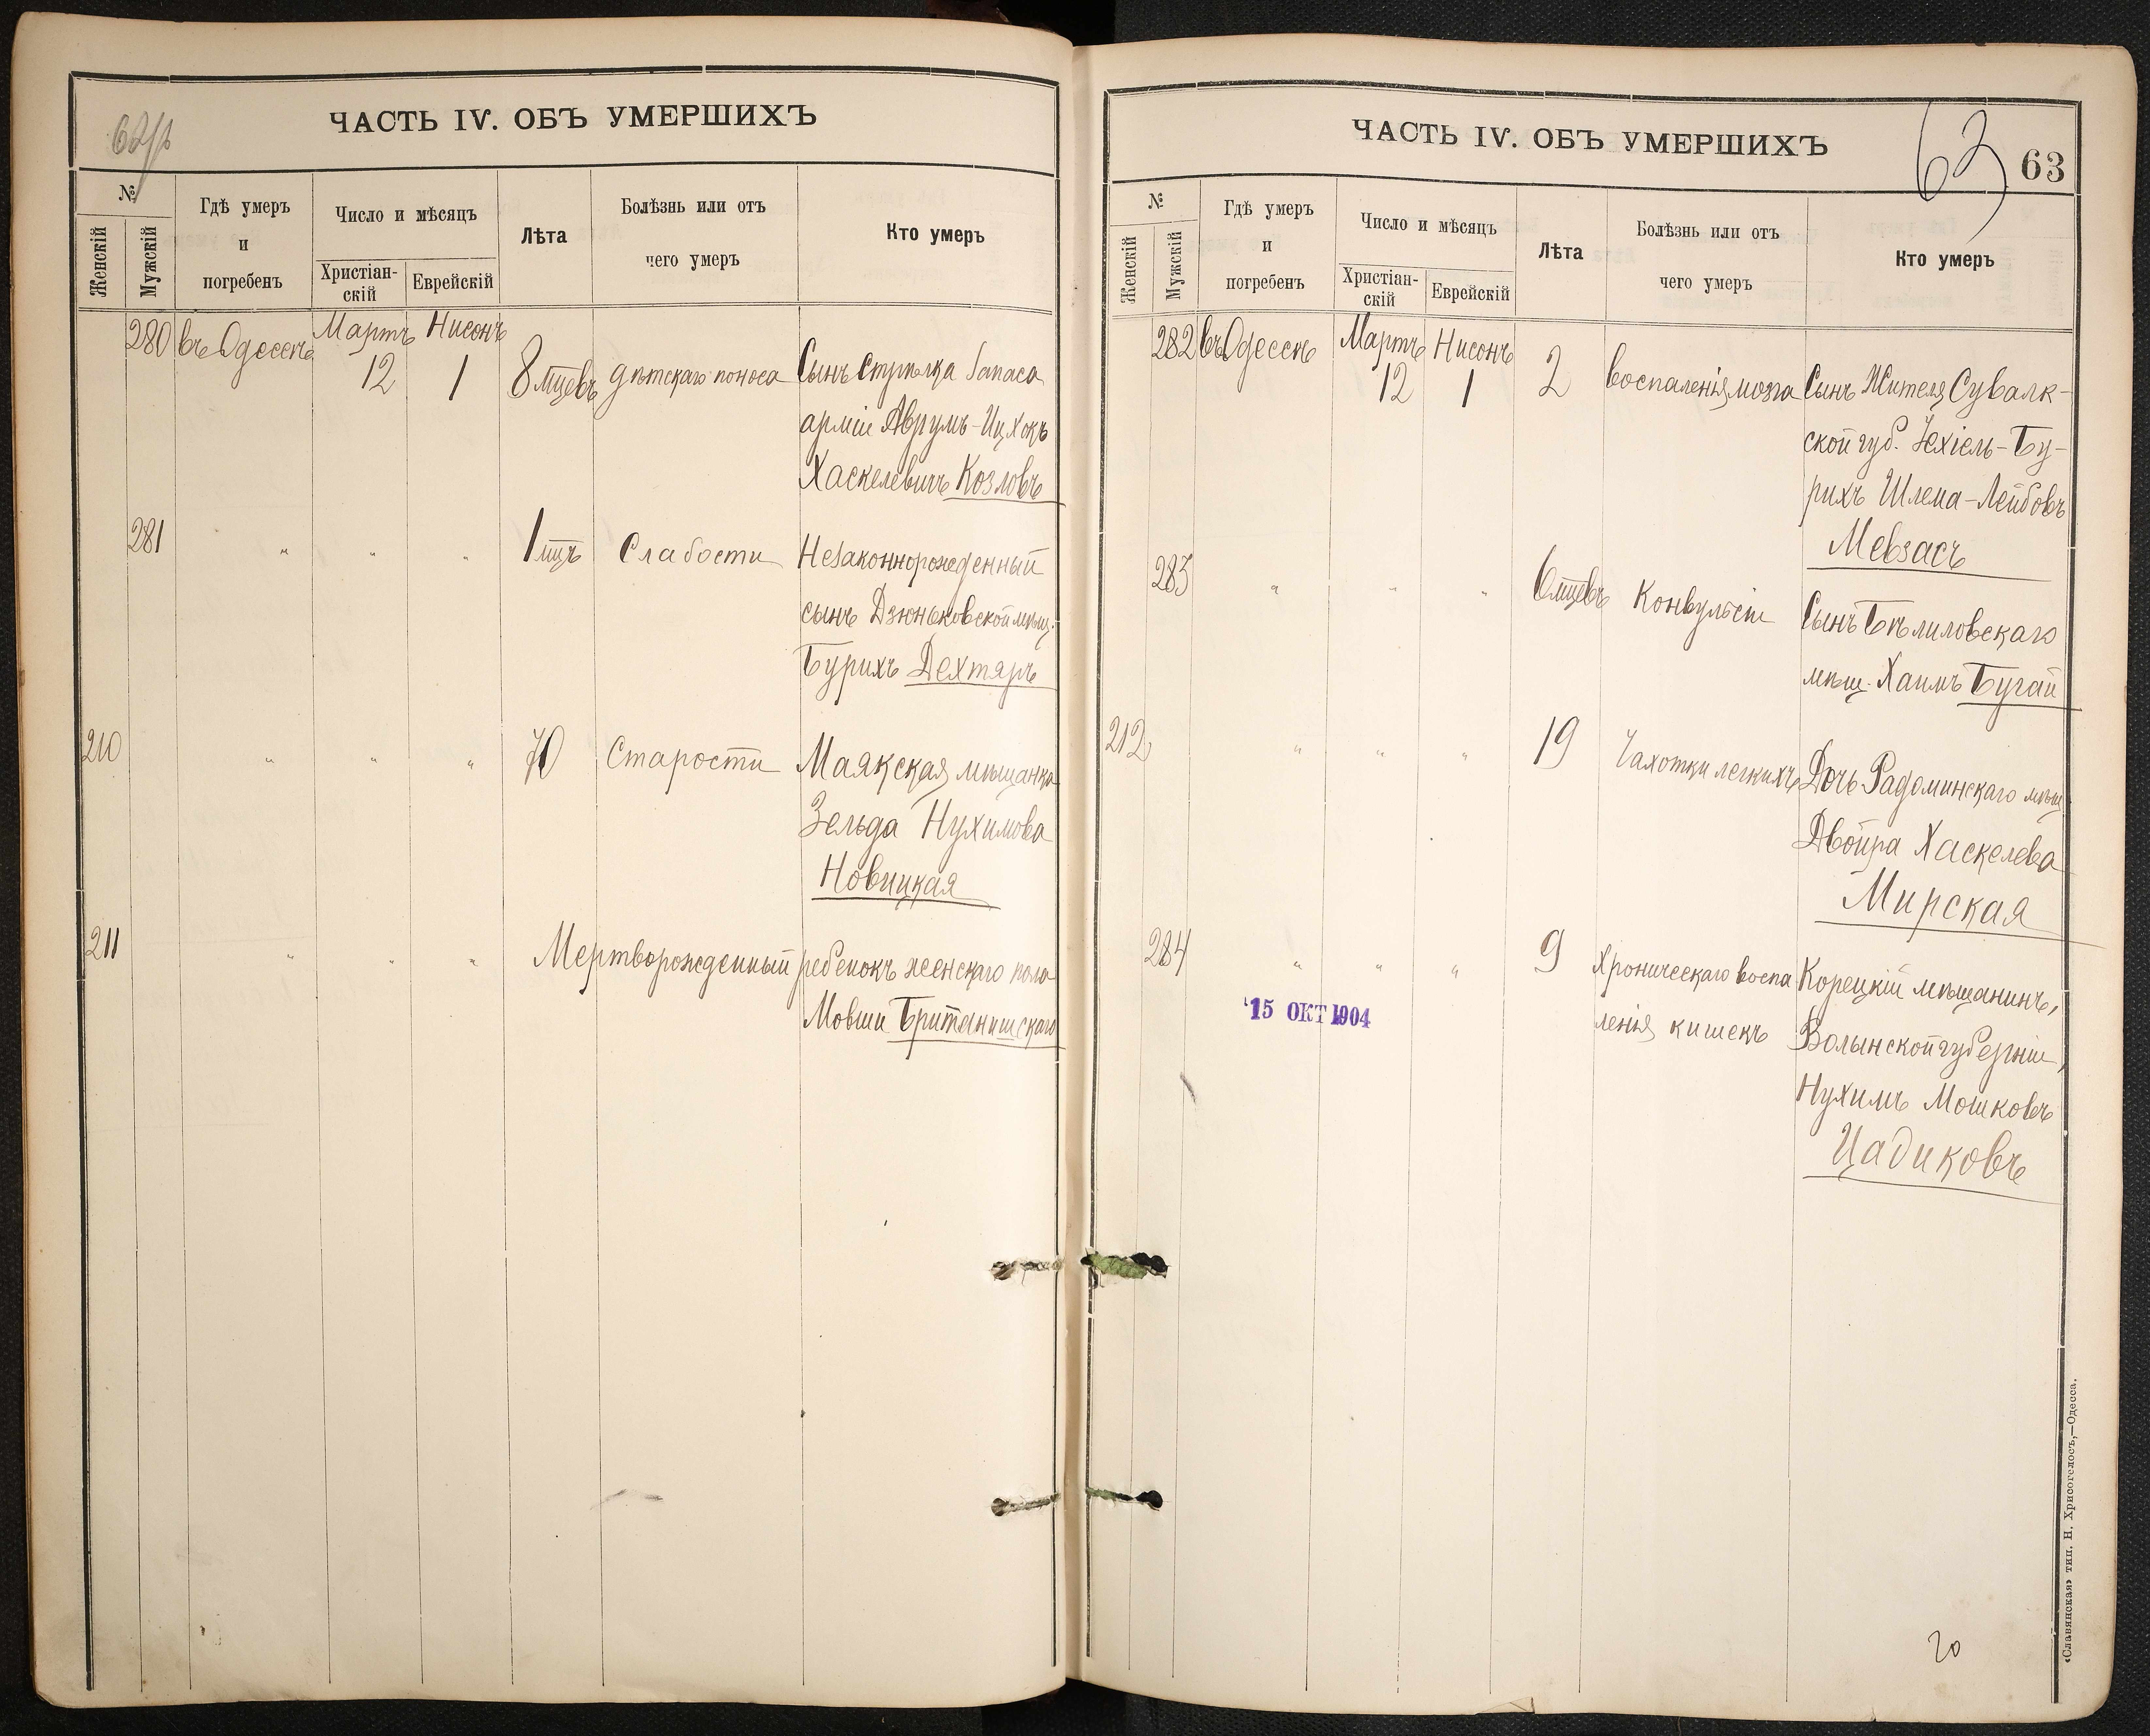 62 об
ЧАСТЬ IV. ОБЪ УМЕРШИХЪ
№
Женскій
Мужскій
Гдѣ умеръ
и
погребенъ
Число и мѣсяцъ
Христіан-
скій
Еврейскій
Лѣта
Болѣзнь или отъ
чего умеръ
Кто умеръ
280 въ Одессѣ Мартъ 12 Нисонъ 1 8 мцевъ дѣтскаго поноса Сынъ Стрѣлка Запаса
арміи Аврумъ-Ицхокъ
Хаскелевичъ Козловъ
281 " " " 1 мцъ Слабости Незаконнорожденный
сынъ Дзюньковской мѣщ.
Бурихъ Дехтяръ
210 " " " 70 Старости Маякская мѣщанка
Зельда Нухимова
Новицкая
211 " " " Мертворожденный ребенокъ женскаго пола
Мовши Британишскаго
ЧАСТЬ IV. ОБЪ УМЕРШИХЪ
63
63
№
Женскій
Мужскій
Гдѣ умеръ
и
погребенъ
Число и мѣсяцъ
Христіан-
скій
Еврейскій
Лѣта
Болѣзнь или отъ
чего умеръ
Кто умеръ
282 въ Одессѣ Мартъ 12 Нисонъ 1 2 воспаленія мозга Сынъ Жителя Сувалк-
ской губ. Іехіель-Бу-
рихъ Шлема-Лейбовъ
Мевзасъ
283 " " " 6 мцевъ Конвульсіи Сынъ Бѣлиловскаго
мѣщ. Хаимъ Бугай
212 " " " 19 Чахотки легкихъ Дочь Радоминскаго мѣщ.
Двойра Хаскелева
Мирская
284 " " " 9 Хроническаго воспа Корецкій мѣщанинъ,
ленія кишекъ Волынской губерніи,
Нухимъ Мошковъ
Цадиковъ
15 ОКТ 1904
«Славянская» тип. Н. Хрисогелосъ,—Одесса.
20